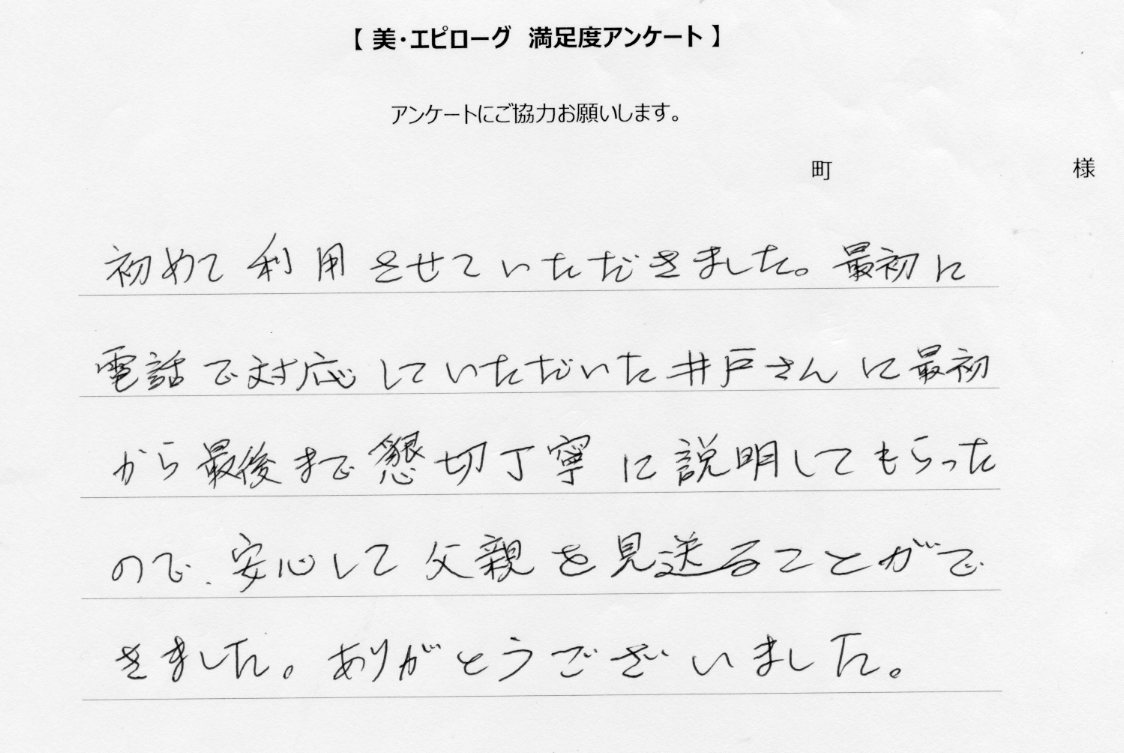 【 美・エピローグ 満足度アンケート 】
アンケートにご協力お願いします。
町 様
初めて利用させていただきました。最初に
電話で対応していただいた井戸さんに最初
から最後まで懇切丁寧に説明してもらった
ので、安心して父親を見送ることがで
きました。ありがとうございました。